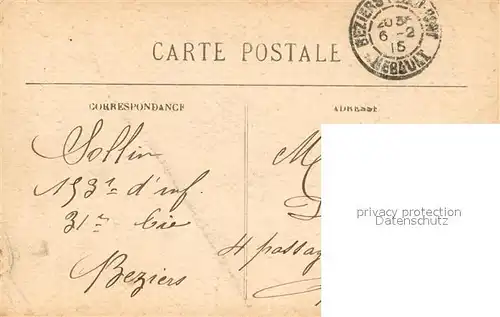 CARTE POSTALE
BEZIERS
20 30
6 -2
15
HERAULT
CORRESPONDANCE
ADRESSE
Sollin
153e d'inf.
31e Cie
Beziers
M
4 passag
privacy protection
Datenschutz